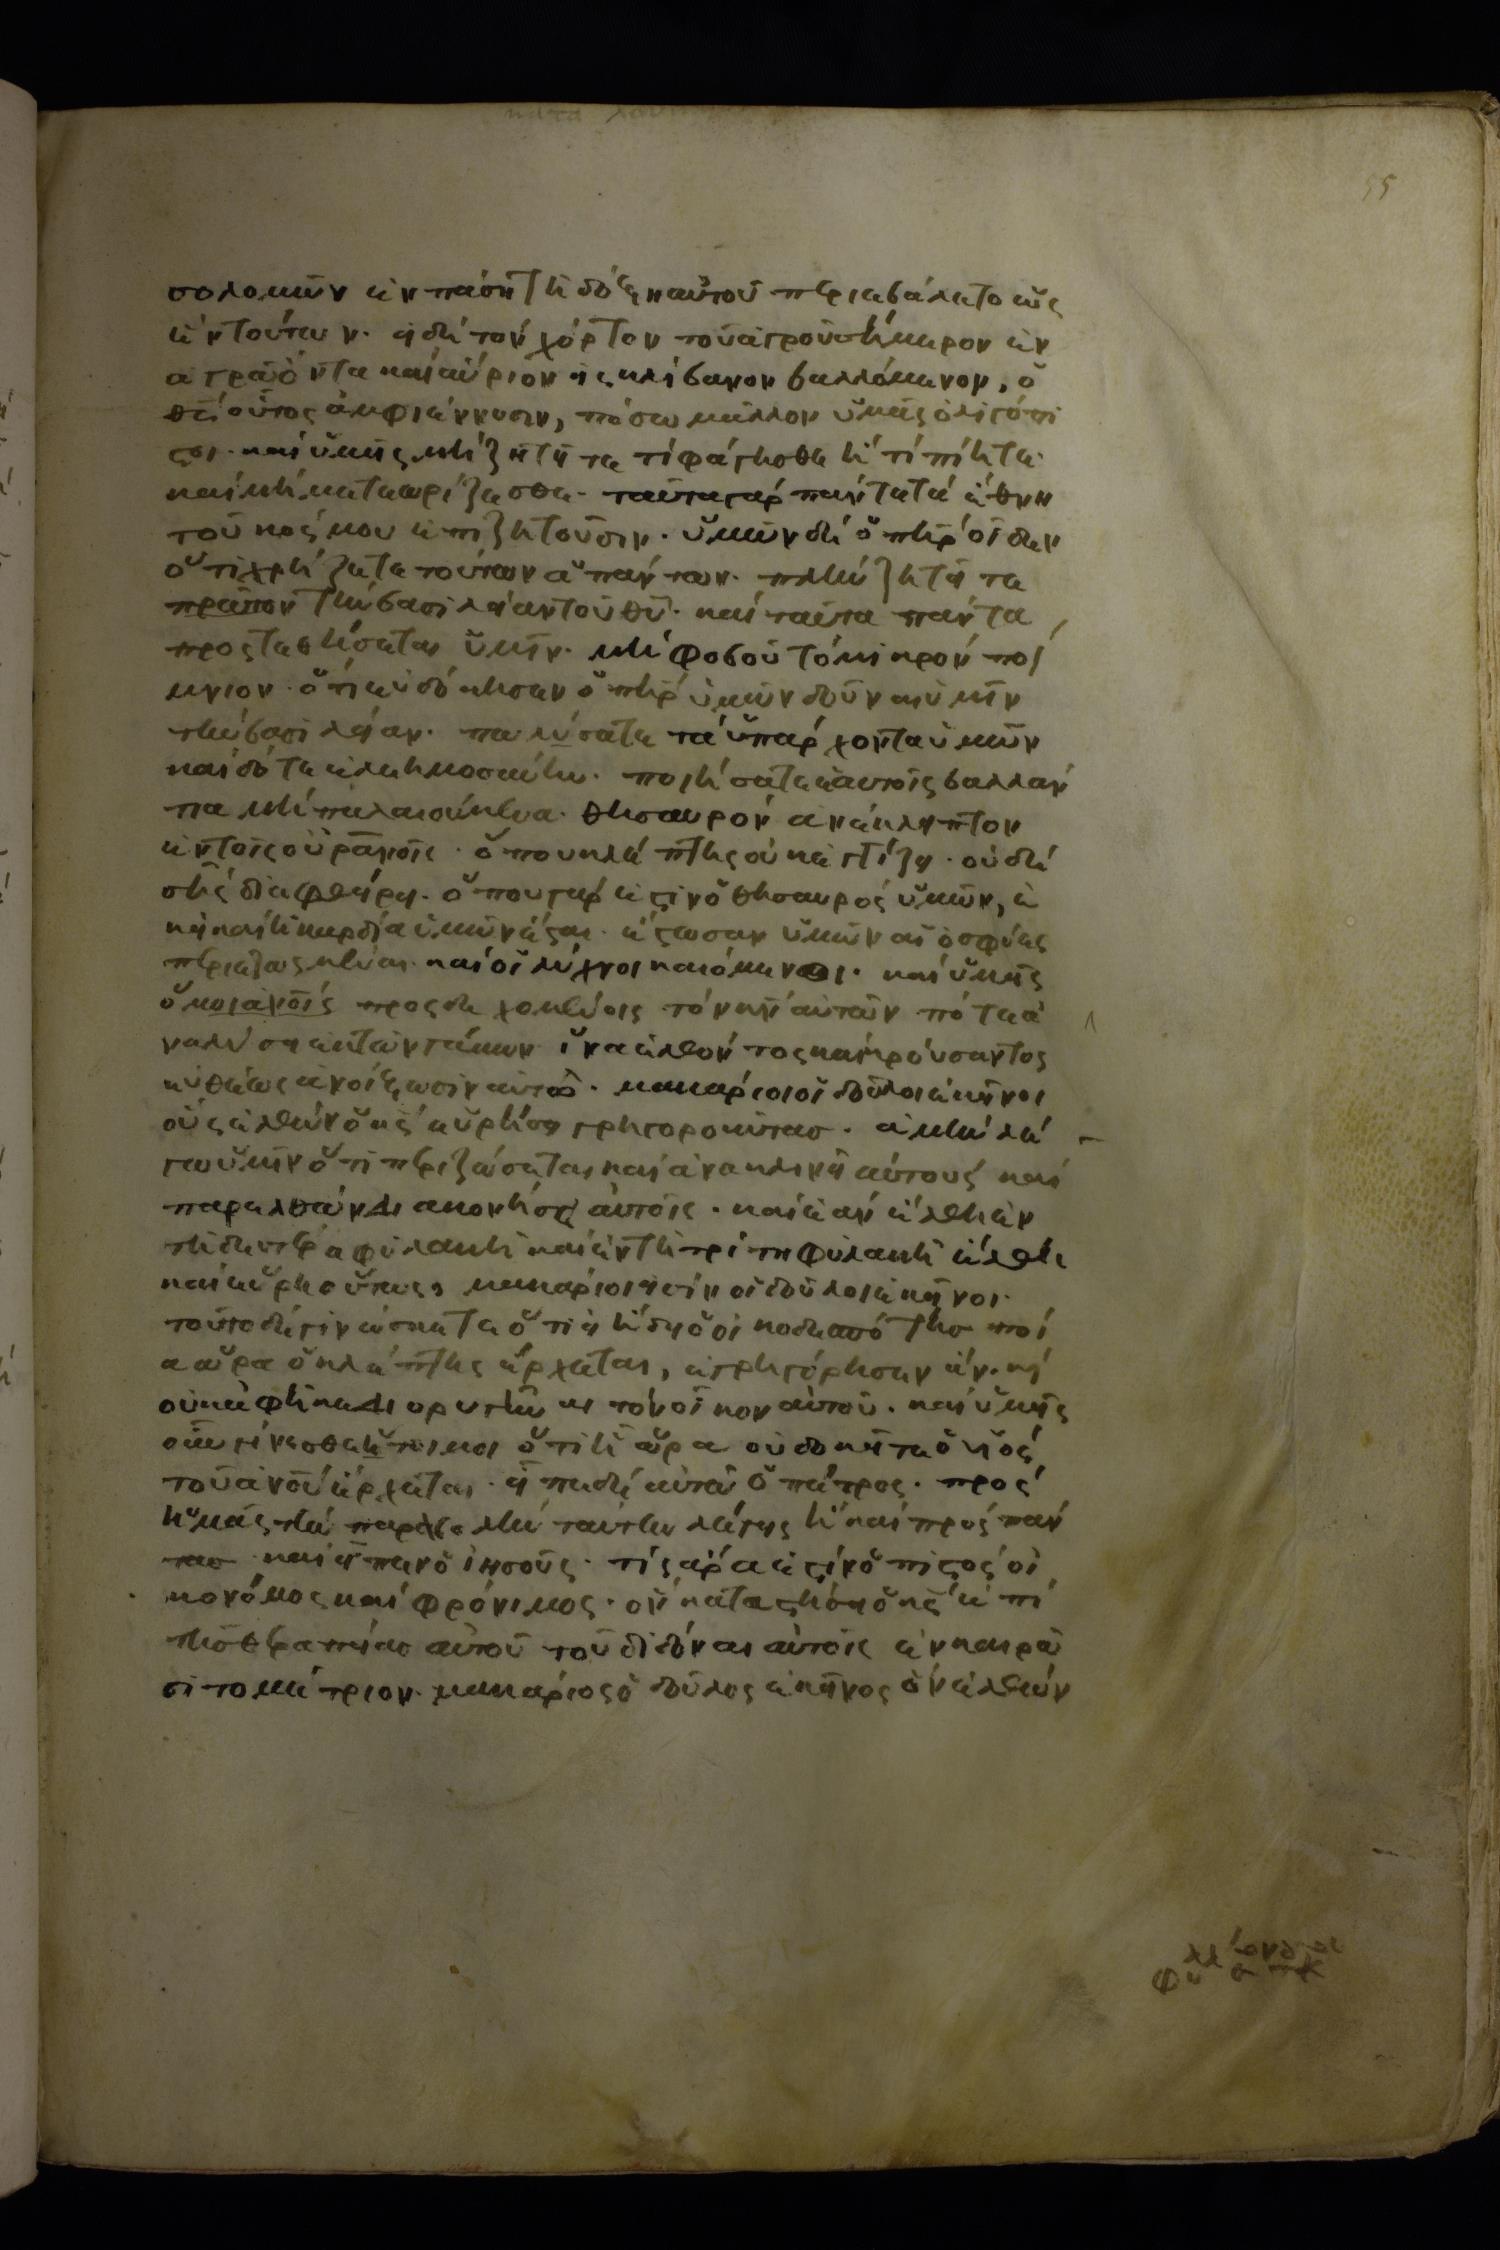 κατα λουκ
55
σολομὼν ἐν πάσῃ τῆ δόξη αὐτοῦ περιεβάλετο ὡς
ἓν τούτων. εἰ δὲ τὸν χόρτον τοῦ ἀγροῦ σήμερον ἐν
ἀγρῶ ὄντα καὶ αὔριον εἰς κλίβανον βαλλόμενον, ὁ
θς οὕτως ἀμφιέννυσιν, πόσω μᾶλλον ὑμᾶς ὀλιγόπι
στοι. καὶ ὑμεῖς μὴ ζητεῖτε τί φάγησθε ἢ τί πίητε.
καὶ μὴ μετεωρίζεσθε. ταῦτα γὰρ πάντα τὰ ἔθνη
τοῦ κόσμου ἐπιζητοῦσιν. ὑμῶν δὲ ὁ πηρ οἶδεν
ὅτι χρήζετε τούτων ἁπάντων. πλὴν ζητεῖτε
πρῶτον τὴν βασιλείαν τοῦ θυ. καὶ ταῦτα πάντα
προστεθήσεται ὑμῖν. μὴ φοβοῦ τὸ μικρὸν ποί
μνιον. ὅτι εὐδόκησεν ὁ πηρ ὑμῶν δοῦναι ὑμῖν
τὴν βασιλείαν. πωλύσατε τὰ ὑπάρχοντα ὑμῶν
καὶ δότε ἐλεημοσύνην. ποιήσατε ἑαυτοῖς βαλλάν
τια μὴ παλαιούμενα. θησαυρὸν ἀνέκλειπτον
ἐν τοῖς οὐρανοῖς. ὅπου κλέπτης οὐκ ἐγγίζει. οὐδὲ
σὴς διαφθείρει. ὅπου γάρ ἐστιν ὁ θησαυρὸς ὑμῶν, ἐ
κεῖ καὶ ἡ καρδία ὑμῶν ἔσται. ἔστωσαν ὑμῶν αἱ ὀσφύες
περιεζωσμέναι καὶ οἱ λύχνοι καιόμενοι. καὶ ὑμεῖς
ὅμοιοι ἀνοις προσδεχομένοις τὸν κν ἑαυτῶν πότε ἀ
ναλύσῃ ἐκ τῶν γάμων ἵνα ἐλθόντος καὶ κρούσαντος
εὐθέως ἀνοίξωσιν αὐτῶ. μακάριοι οἱ δοῦλοι ἐκεῖνοι
οὓς ἐλθὼν ὁ κς εὑρήσῃ γρηγοροῦντας. ἀμὴν λέ
γω ὑμῖν ὅτι περιζώσεται καὶ ἀνακλινεῖ αὐτοὺς καὶ
παρελθὼν διακονήσει αὐτοῖς. καὶ ἐὰν ἔλθη ἐν
τῆ δευτέρα φυλακῆ καὶ ἐν τῆ τρίτη φυλακῆ ἔλθη
καὶ εὕρη οὕτως, μακάριοι εἰσὶν οἱ δοῦλοι ἐκεῖνοι.
τοῦτο δὲ γινώσκετε ὅτι εἰ ἤδει ὁ οἰκοδεσπότης ποί
α ὥρα ὁ κλέπτης ἔρχεται, ἐγρηγόρησεν ἄν. καὶ
οὐκ ἀφῆκε διορυγῆναι τὸν οἶκον αὐτοῦ. καὶ ὑμεῖς
οὖν γίνεσθε ἕτοιμοι ὅτι ἧ ὥρα οὐ δοκεῖτε ὁ υἱὸς
τοῦ ανου ἔρχεται. εἶπε δὲ αὐτῶ ὁ πέτρος. πρὸς
ἡμᾶς τὴν παραβολὴν ταύτην λέγεις ἢ καὶ πρὸς πάν
τας καὶ εἶπεν ὁ ἰησοῦς. τίς ἄρα ἐστὶν ὁ πιστὸς οἰ
κονόμος καὶ φρόνιμος. ὃν καταστήσει ὁ κς ἐπὶ
τῆς θεραπείας αὐτοῦ τοῦ διδόναι αὐτοῖς ἐν καιρῶ
σιτομέτριον. μακάριος ὁ δοῦλος ἐκεῖνος ὃν ἐλθὼν